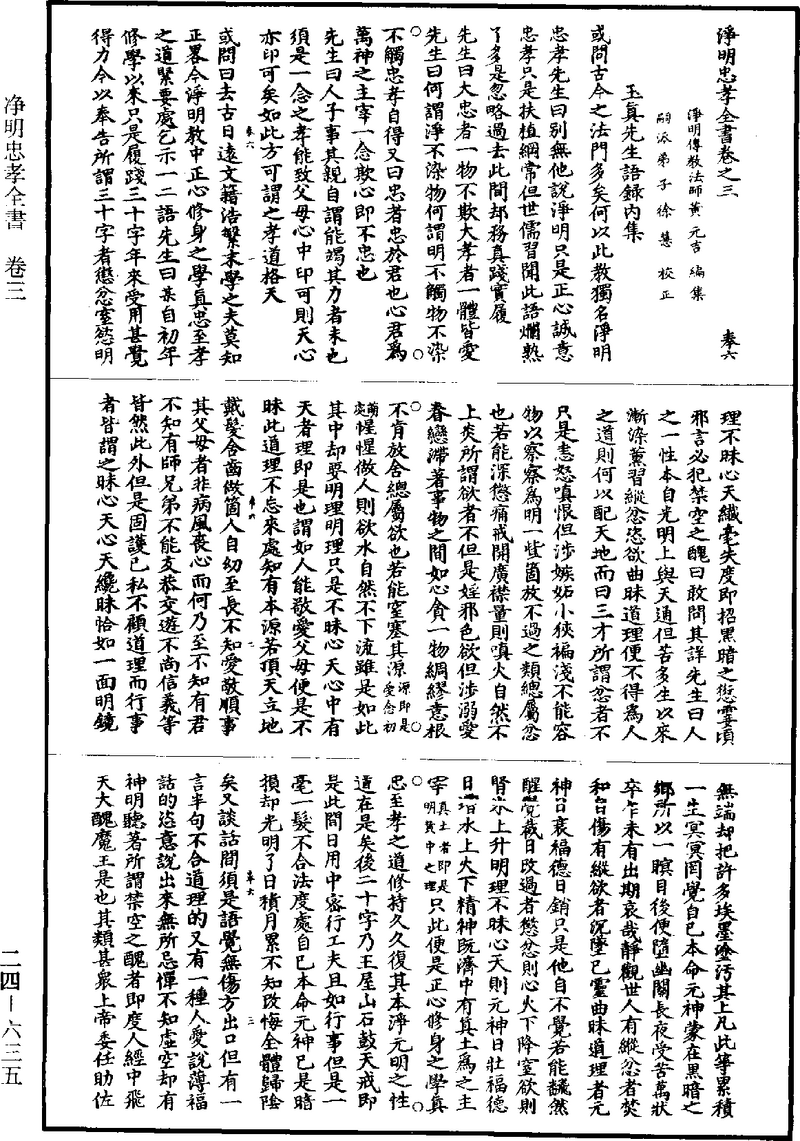 淨明忠孝全書卷之三
淨明傳教法師黃元吉編集
嗣派弟子徐慧校正
奉六
玉真先生語錄內集
或問古今之法門多矣何以此教獨名淨明
忠孝先生曰別無他說淨明只是正心誠意
忠孝只是扶植綱常但世儒習聞此語爛熟
了多是忽略過去此間却務真踐實履
先生曰大忠者一物不欺大孝者一體皆愛
先生曰何謂淨不染物何謂明不觸物不染
不觸忠孝自得又曰忠者忠於君也心君爲
萬神之主宰一念欺心即不忠也
先生曰人子事其親自謂能竭其力者未也
須是一念之孝能致父母心中印可則天心
亦印可矣如此方可謂之孝道格天
或問曰去古日遠文籍浩繁末學之夫莫知
正畧今淨明教中正心修身之學真忠至孝
之道緊要處乞示一二語先生曰某自初年
修學以來只是履踐三十字年來受用甚覺
得力今以奉告所謂三十字者懲忿窒慾明
理不昧心天纖毫失度即招黑暗之愆霎頃
邪言必犯禁空之醜曰敢問其詳先生曰人
之一性本自光明上與天通但苦多生以來
漸染薰習縱忿恣欲曲昧道理便不得爲人
之道則何以配天地而曰三才所謂忿者不
只是恚怒嗔恨但涉嫉妬小狹褊淺不能容
物以察察爲明一些箇放不過之類總屬忿
也若能深懲痛戒開廣襟量則嗔火自然不
上炎所謂欲者不但是婬邪色欲但涉溺愛
眷戀滯著事物之間如心貪一物綢繆意根
不肯放舍總屬欲也若能窒塞其源源即是愛念初
萌處惺惺做人則欲水自然不下流雖是如此
其中却要明理明理只是不昧心天心中有
天者理即是也謂如人能敬愛父母便是不
昧此道理不忘來處知有本源若頂天立地
戴髮含齒做箇人自幼至長不知愛敬順事
其父母者非病風喪心而何乃至不知有君
不知有師兄弟不能友恭交遊不尚信義等
皆然此外但是固護己私不顧道理而行事
者皆謂之昧心天心天纔昧恰如一面明鏡
無端却把許多埃墨塗污其上凡此等累積
一生冥冥罔覺自己本命元神蒙在黑暗之
鄉所以一瞑目後便墮幽關長夜受苦萬狀
卒乍未有出期哀哉靜觀世人有縱忿者焚
和自傷有縱欲者沉墜己靈曲昧道理者元
神日衰福德日銷只是他自不覺若能飜然
醒覺裁日改過者懲忿則心火下降窒欲則
腎水上升明理不昧心天則元神日壯福德
日增水上火下精神既濟中有真土爲之主
宰真土者即是明黃中之理只此便是正心修身之學真
忠至孝之道修持久久復其本淨元明之性
道在是矣後二十字乃王屋山石鼓天戒即
是此間日用中密行工夫且如行事但是一
毫一髮不合法度處自己本命元神已是暗
損却光明了日積月累不知改悔全體歸陰
矣又談話間須是語覺無傷方出口但有一
言半句不合道理的又有一種人愛說薄福
話的恣意說出來無所忌憚不知虛空却有
神明聽著所謂禁空之醜者即度人經中飛
天大醜魔王是也其類甚衆上帝委任助佐
奉六
二
奉六
三
净明忠孝全書 卷三
二四—六三五